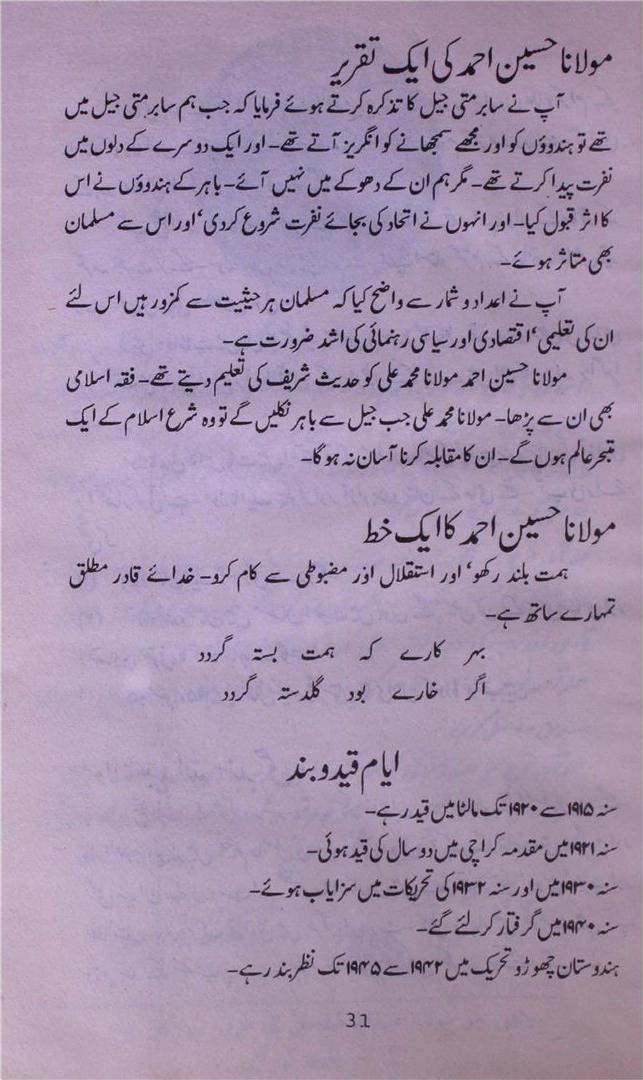 مولانا حسین احمد کی ایک تقریر
آپ نے سابر متی جیل کا تذکرہ کرتے ہوئے فرمایا کہ جب ہم سابر متی جیل میں
تھے تو ہندوؤں کو اور مجھے سمجھانے کو انگریز آتے تھے۔ اور ایک دوسرے کے دلوں میں
نفرت پیدا کرتے تھے۔ مگر ہم ان کے دھوکے میں نہیں آئے۔ باہر کے ہندوؤں نے اس
کا اثر قبول کیا۔ اور انہوں نے اتحاد کی بجائے نفرت شروع کردی‘ اور اس سے مسلمان
بھی متاثر ہوئے۔
آپ نے اعداد و شمار سے واضح کیا کہ مسلمان ہر حیثیت سے کمزور ہیں اس لئے
ان کی تعلیمی‘ اقتصادی اور سیاسی رہنمائی کی اشد ضرورت ہے۔
مولانا حسین احمد مولانا محمد علی کو حدیث شریف کی تعلیم دیتے تھے۔ فقہ اسلامی
بھی ان سے پڑھا۔ مولانا محمد علی جب جیل سے باہر نکلیں گے تو وہ شرع اسلام کے ایک
متبحر عالم ہوں گے۔ ان کا مقابلہ کرنا آسان نہ ہوگا۔
مولانا حسین احمد کا ایک خط
ہمت بلند رکھو‘ اور استقلال اور مضبوطی سے کام کرو۔ خدائے قادر مطلق
تمہارے ساتھ ہے۔
بہر کارے کہ ہمت بستہ گردد
اگر خارے بود گلدستہ گردد
ایام قید و بند
سنہ ۱۹۱۵ سے ۱۹۲۰ تک مالٹا میں قید رہے۔
سنہ ۱۹۲۱ میں مقدمہ کراچی میں دو سال کی قید ہوئی۔
سنہ ۱۹۳۰ میں اور سنہ ۱۹۳۲ کی تحریکات میں سزایاب ہوئے۔
سنہ ۱۹۴۰ میں گرفتار کرلئے گئے۔
ہندوستان چھوڑو تحریک میں ۱۹۴۲ سے ۱۹۴۵ تک نظر بند رہے۔
31